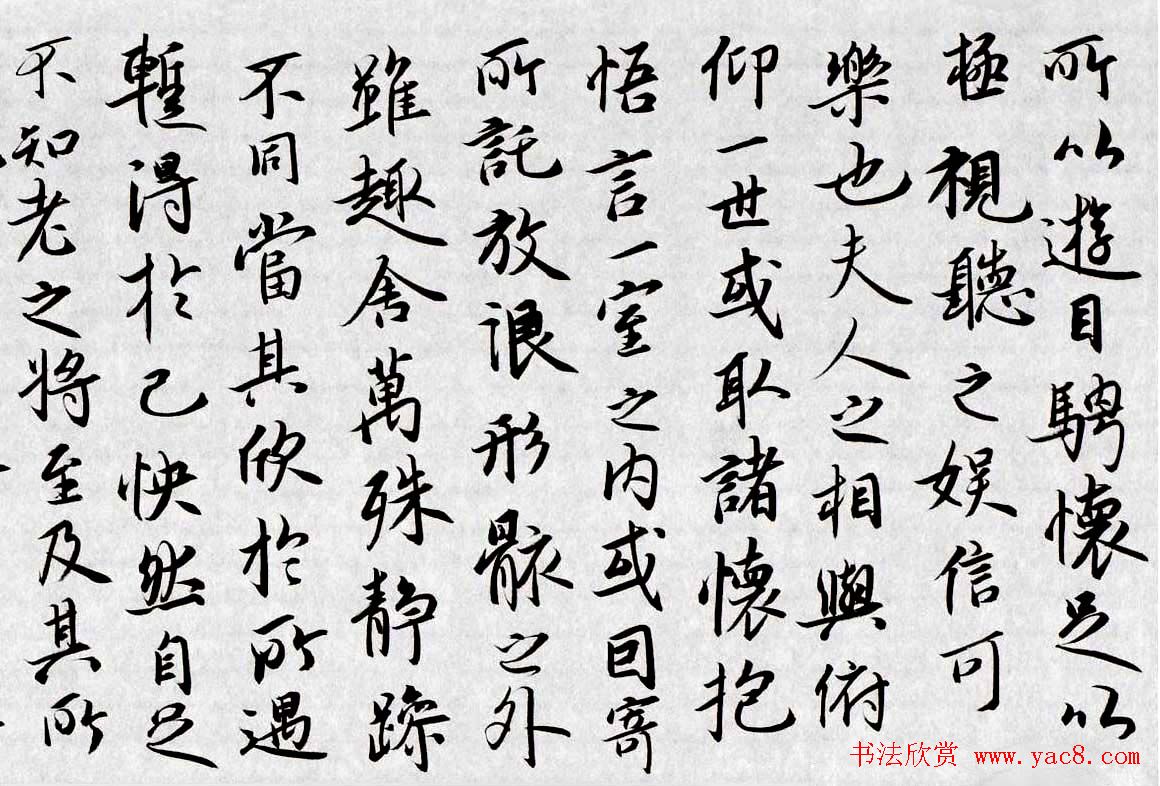 所以遊目騁懷足以
極視聽之娛信可
樂也夫人之相與俯
仰一世或取諸懷抱
悟言一室之內或因寄
所託放浪形骸之外
雖趣舍萬殊静躁
不同當其欣於所遇
暫得於己快然自足
不知老之將至及其所
书法欣赏 www.yac8.com